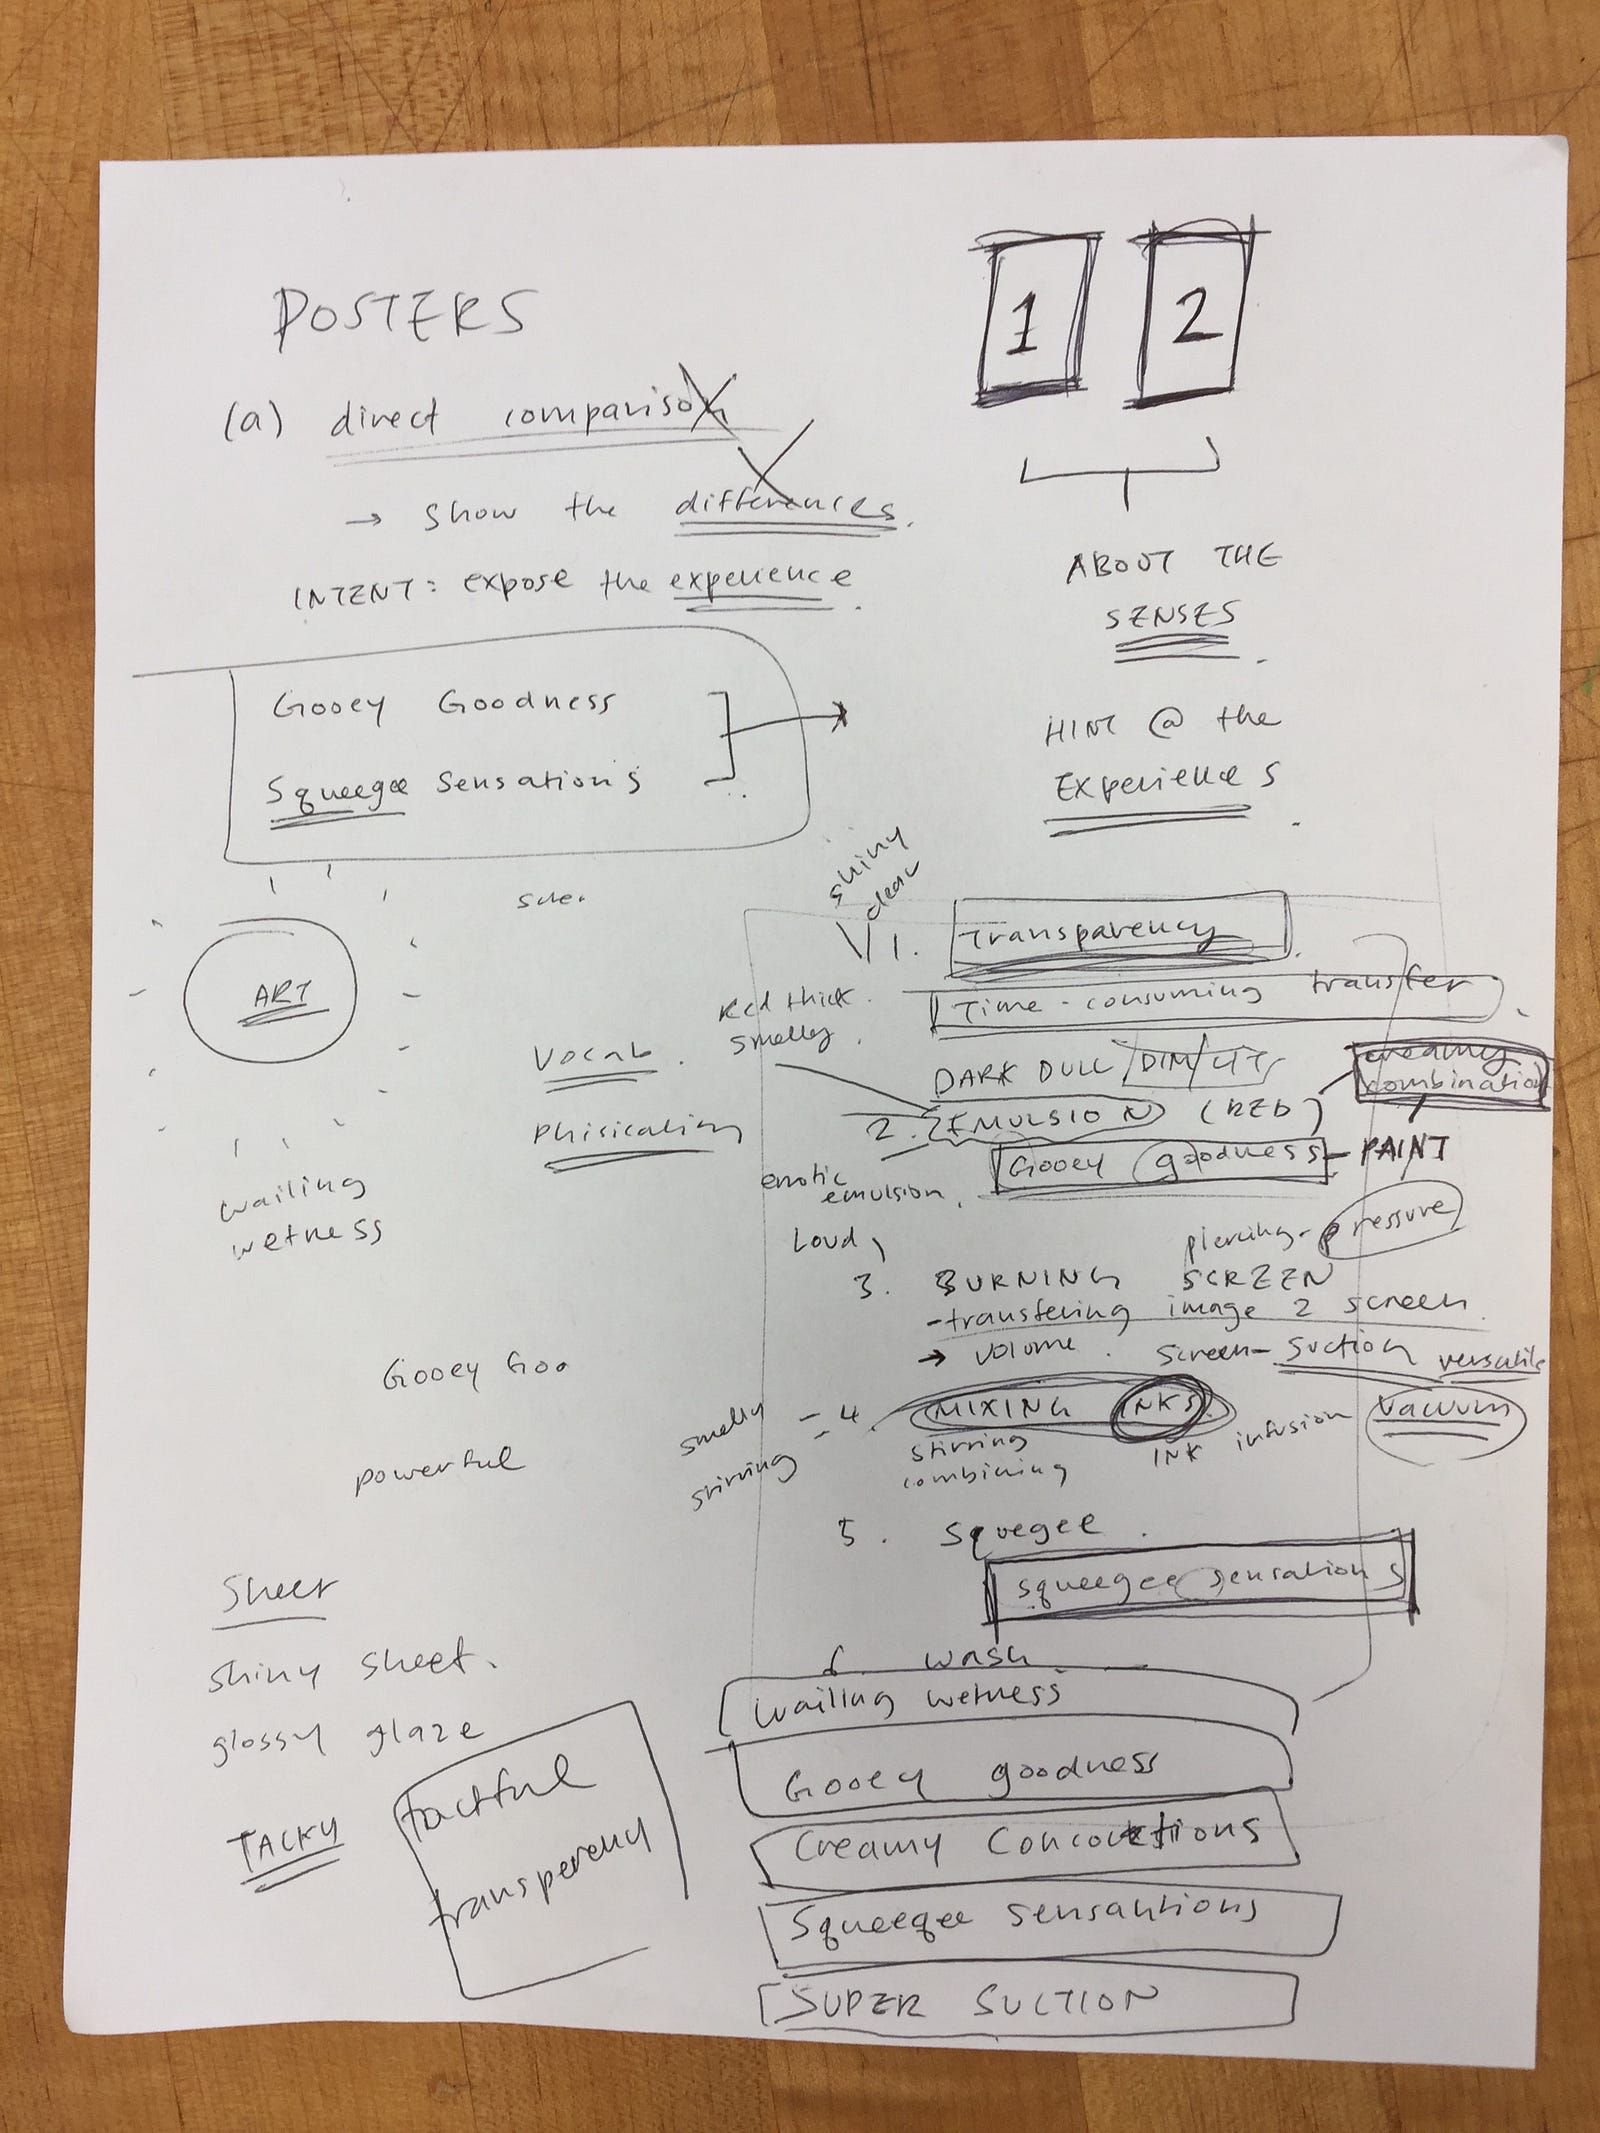 POSTERS
(a) direct comparison
→ show the differences.
INTENT: expose the experience.
Gooey Goodness
Squeegee Sensations
1 2
ABOUT THE
SENSES.
HINT @ the
Experiences.
ART
wailing
wetness
Vocab.
Gooey Goo
powerful
Sheer
shiny sheet.
glossy glaze
TACKY
tactful
transperency
shiny
clear
1. Transparency.
Time-consuming transfer.
Red thick.
smelly.
DARK DULL / DIM / LIT
creamy
combination
2. EMULSION (RED)
Gooey goodness - PAINT
emulsion.
Loud,
piercing - pressure
3. BURNING SCREEN
- transfering image 2 screen
→ volume. screen - suction versatile
smelly
stirring
- 4. MIXING INKS.
stirring
combining
INK infusion vacuum
5. Squegee.
squeegee sensations
6. wash.
wailing wetness
Gooey goodness
Creamy Concoctions
Squeegee sensantions
SUPER SUCTION